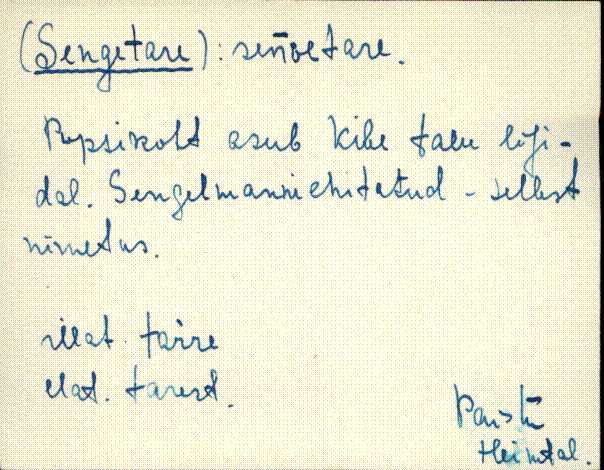 (Sengetare): seŋ̄etare.
Popsikoht asub Kibe talu lähi-
dal. Sengelmanni ehitatud - sellest
nimetus.
illat. tarre
elat. tarest.
Paistu
Heimtal.